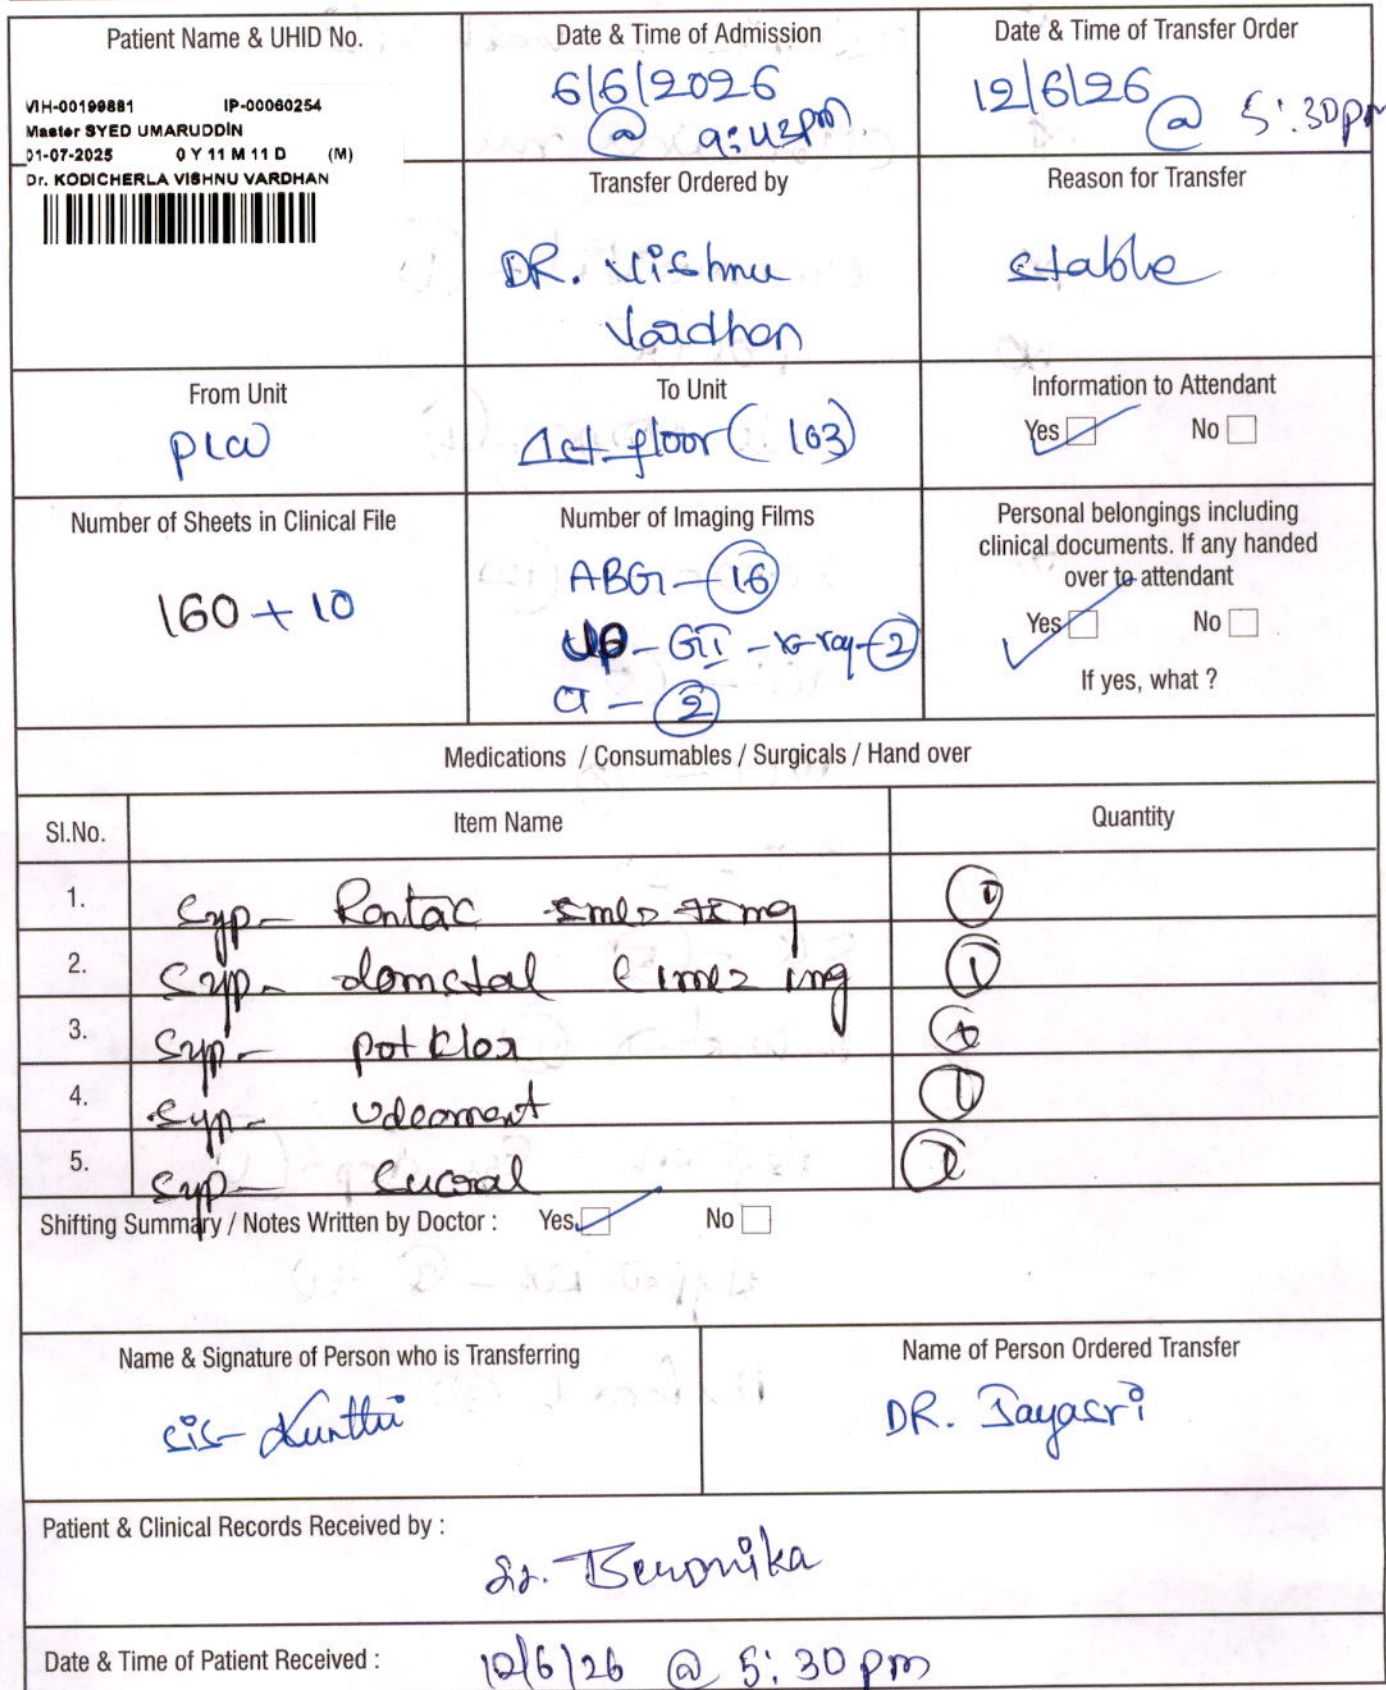 Patient Name & UHID No.
VIH-00199881 IP-00060254
Master SYED UMARUDDIN
01-07-2025 0 Y 11 M 11 D (M)
Dr. KODICHERLA VISHNU VARDHAN
Date & Time of Admission
6/6/2026
@ 9:42pm
Date & Time of Transfer Order
12/6/26 @ 5:30pm
Transfer Ordered by
DR. Vishnu
Vardhan
Reason for Transfer
stable
From Unit
PICU
To Unit
1st floor (103)
Information to Attendant
Yes No
Number of Sheets in Clinical File
160 + 10
Number of Imaging Films
ABG - 16
GI - x-ray - 2
CT - 2
Personal belongings including
clinical documents. If any handed
over to attendant
Yes No
If yes, what ?
Medications / Consumables / Surgicals / Hand over
Sl.No. Item Name Quantity
1. Syp- Rantac 5ml= 75mg 1
2. Syp- domstal 1ml= 1mg 1
3. Syp- potklor
4. Syp- 1
5. Syp- Sucral
Shifting Summary / Notes Written by Doctor : Yes No
Name & Signature of Person who is Transferring
sis- Kunthi
Name of Person Ordered Transfer
DR. Jayasri
Patient & Clinical Records Received by :
Sr.
Date & Time of Patient Received :
12/6/26 @ 5:30pm